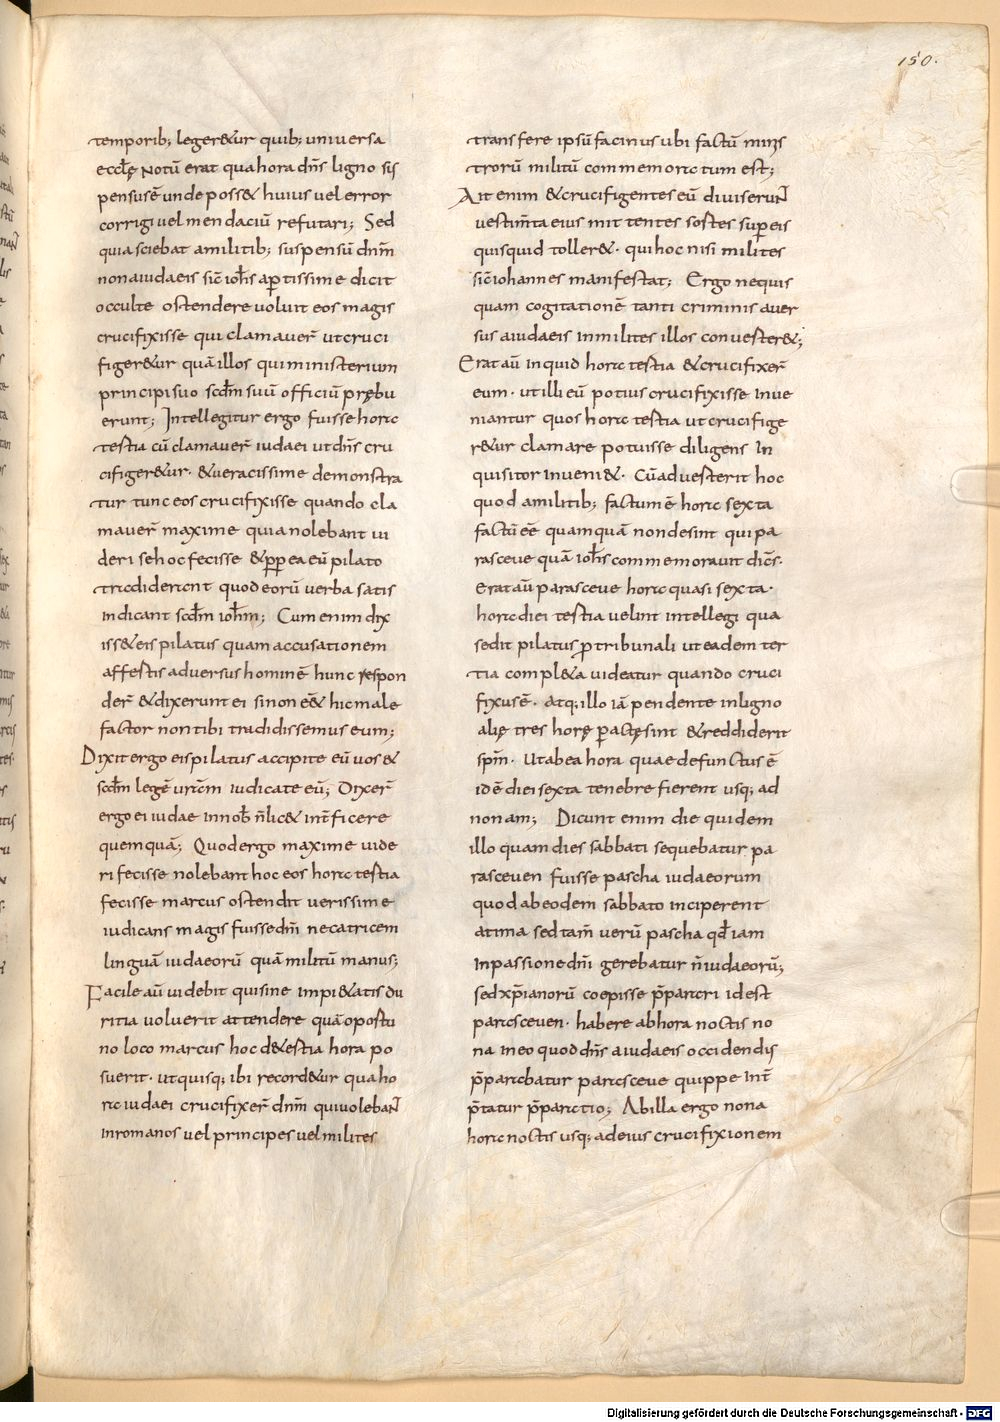 150.
temporib; leger&ur quib; universa
eccłę Notū erat qua hora dn̄s ligno sus
pensus ē unde poss& huius uel error
corrigi uel mendaciū refutari; Sed
quia sciebat a militib; suspensū dnm̄
non a iudaeis sic̄ ioh̄s aptissime dicit
occulte ostendere uoluit eos magis
crucifixisse qui clamauer̄ ut cruci
figer&ur quā illos qui ministerium
principi suo scdm̄ suū officiū prębu
erunt; Intellegitur ergo fuisse hora
tertia cū clamauer̄ iudaei ut dn̄s cru
cifiger&ur. & ueracissime demonstra
tur tunc eos crucifixisse quando cla
mauer̄ maxime quia nolebant ui
deri se hoc fecisse & pp ea eū pilato
tradiderant quod eorū uerba satis
indicant scdm̄ ioh̄m; Cum enim dix
iss& eis pilatus quam accusationem
affertis aduersus hominē hunc respon
der̄ & dixerunt ei si non ēē& hic male
factor non tibi tradidissemus eum;
Dixit ergo eis pilatus accipite eū uos &
scdm̄ legē urām iudicate eū; Dixer̄
ergo ei iudae in nob̄ n̄ lic& int̄ficere
quemquā; Quod ergo maxime uide
ri fecisse nolebant hoc eos hora tertia
fecisse marcus ostendit uerissime
iudicans magis fuisse dnī necatricem
linguā iudaeorū quā militū manus;
Facile aū uidebit quisine impi&atis du
ritia uoluerit attendere quā oportu
no loco marcus hoc d& ertia hora po
suerit. ut quisq; ibi record&ur qua ho
ra iudaei crucifixer̄ dnm̄ qui uolebaN̄
in romanos uel principes uel milites
transfere ipsū facinus ubi factū minis
trorū militū commemoratum est;
Ait enim & crucifigentes eū diuiseruN̄
uestim̄ta eius mittentes sortes super eis
quis quid toller&. qui hoc nisi milites
sic̄ iohannes manifestat; Ergo ne quis
quam cogitationē tanti criminis auer
sus a iudaeis in milites illos conuerter&;
Erat aū inquid hora tertia & crucifixer̄
eum. ut illi eū potius crucifixisse inue
niantur quos hora tertia ut crucifige
r&ur clamare potuisse diligens in
quisitor inueni&. Cū aduerterit hoc
quod a militib; factum ē hora sexta
factū eē quamquā non desint qui pa
rasceue quā ioh̄s commemorauit dicn̄s.
Erat aū parasceue hora quasi sexta.
hora diei tertia uelint intellegi qua
sedit pilatus p tribunali ut eadem ter
tia compl&a uideatur quando cruci
fixus ē. atq; illo iā pendente in ligno
alię tres horę pactę sint & reddiderit
spm̄. Ut ab ea hora quae defunctus ē
id ē diei sexta tenebre fierent usq; ad
nonam; Dicunt enim die quidem
illo quam dies sabbati sequebatur pa
rasceuen fuisse pascha iudaeorum
quod ab eodem sabbato inciperent
atima sed tam̄ uerū pascha qd̄ iam
In passione dnī gerebatur n̄ iudaeorū;
sed xp̄ianorū coepisse p̄parari id est
parasceuen. habere ab hora noctis no
na in eo quod dn̄s a iudaeis occidendis
p̄parabatur parasceue quippe int̄
p̄tatur p̄paratio; Ab illa ergo nona
hora noctis usq; ad eius crucifixionem
Digitalisierung gefördert durch die Deutsche Forschungsgemeinschaft - DFG